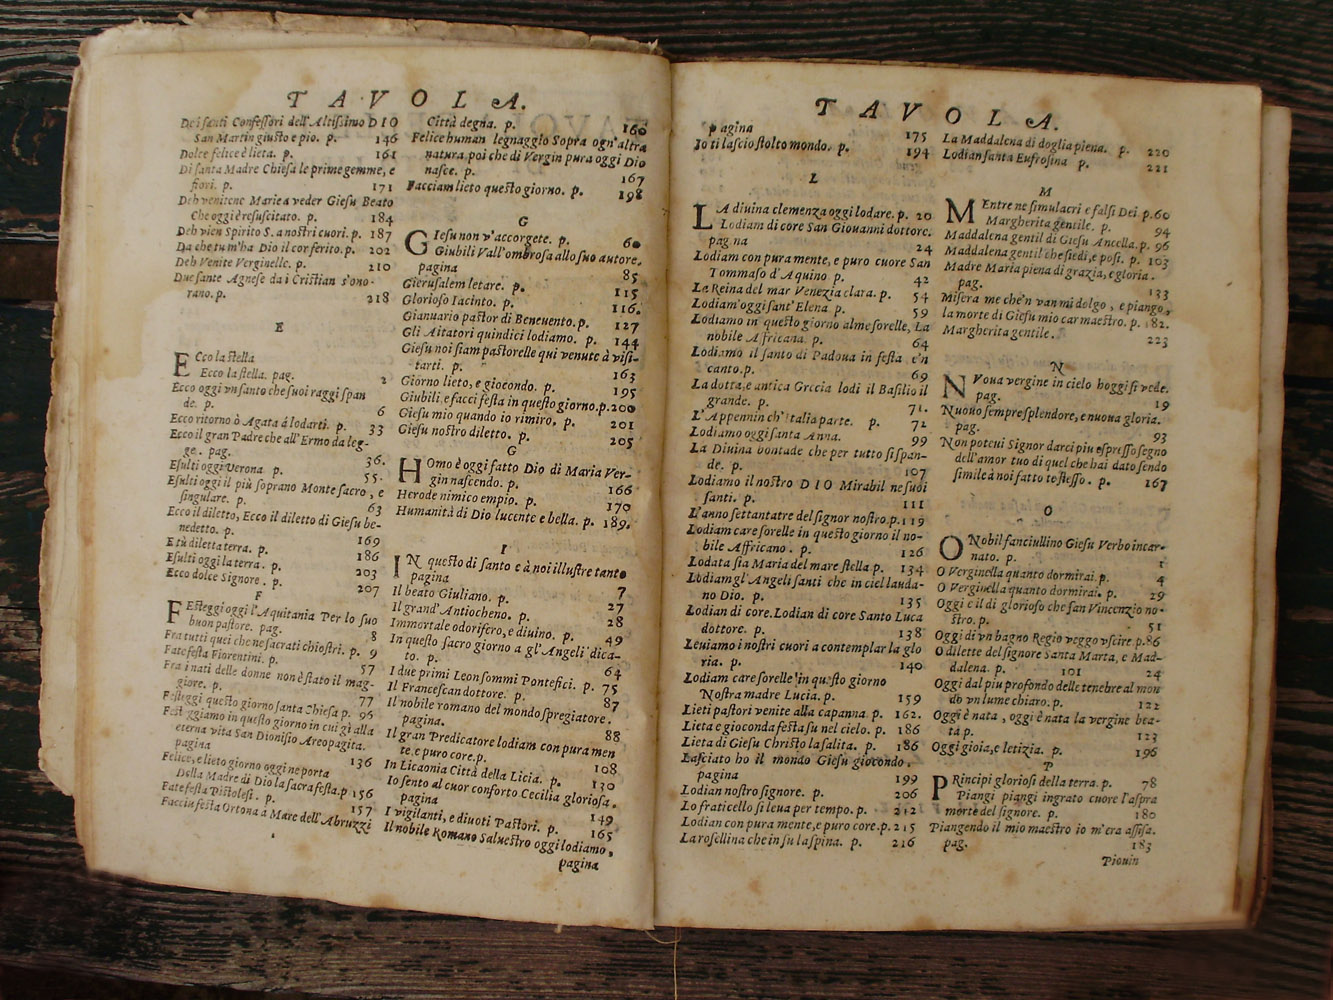 TAVOLA.
De i santi Confessori dell'Altissimo DIO
San Martin giusto e pio. p. 146
Dolce felice è lieta. p. 161
Di santa Madre Chiesa le prime gemme, e
fiori. p. 171
Deh venitene Marie a veder Giesu Beato
Che oggi è resuscitato. p. 184
Deh vien Spirito S. a nostri cuori. p. 187
Da che tu m'ha Dio il cor ferito. p. 202
Deh Venite Verginelle. p. 210
Due sante Agnese da i Cristian s'ono-
rano. p. 218
E
ECco la stella
Ecco la stella. pag. 2
Ecco oggi vn santo che suoi raggi span
de. p. 6
Ecco ritorno ò Agata á lodarti. p. 33
Ecco il gran Padre che all'Ermo da leg-
ge. pag. 36.
Esulti oggi Verona p. 55.
Esulti oggi il più soprano Monte sacro, e
singulare. p. 63
Ecco il diletto, Ecco il diletto di Giesu be-
nedetto. p. 169
E tù diletta terra. p. 186
Esulti oggi la terra. p. 203
Ecco dolce Signore. p. 207
F
FEsteggi oggi l'Aquitania Per lo suo
buon pastore. pag. 8
Fra tutti quei che ne sacrati chiostri. p. 9
Fate festa Fiorentini. p. 57
Fra i nati delle donne non è stato il mag-
giore. p. 77
Festeggi questo giorno santa Chiesa p. 96
Fest ggiamo in questo giorno in cui gì alla
eterna vita San Dionisio Areopagita.
pagina 136
Felice, e lieto giorno oggi ne porta
Della Madre di Dio la sacra festa. p 156
Fate festa Pistolesi. p. 157
Faccia festa Ortona a Mare dell'Abruzzi
Città degna. p. 160
Felice human legnaggio Sopra ogn'altra
natura poi che di Vergin pura oggi Dio
nasce. p. 167
Facciam lieto questo giorno. p. 198
G
GIesu non v'accorgete. p. 60
Giubili Vall'ombrosa allo suo autore.
pagina 85
Gierusalem letare. p. 115
Glorioso Iacinto. p. 116.
Gianuario pastor di Beneuento. p. 127
Gli Aitatori quindici lodiamo. p. 144
Giesu noi siam pastorelle qui venute à visi-
tarti. p. 163
Giorno lieto, e giocondo. p. 195
Giubili, e facci festa in questo giorno. p. 200
Giesu mio quando io rimiro. p. 201
Giesu nostro diletto. p. 205
G
HOmo è oggi fatto Dio di Maria Ver-
gin nascendo. p. 166
Herode nimico empio. p. 170
Humanità di Dio lucente e bella. p. 189.
I
IN questo di santo e à noi illustre tanto
pagina 7
Il beato Giuliano. p. 27
Il grand'Antiocheno. p. 28
Immortale odorifero, e diuino. p. 49
In questo sacro giorno a gl'Angeli dica-
to. p. 64
I due primi Leon sommi Pontefici. p. 75
Il Francescan dottore. p. 87
Il nobile romano del mondo spregiatore.
pagina. 88
Il gran Predicatore lodiam con pura men
te. e puro core. p. 108
In Licaonia Città della Licia. p. 130
Io sento al cuor conforto Cecilia gloriosa.
pagina 149
I vigilanti, e diuoti Pastori. p. 165
Il nobile Romano Saluestro oggi lodiamo,
pagina
TAVOLA.
pagina 175
Io ti lascio stolto mondo. p. 194
L
LA diuina clemenza oggi lodare. p. 20
Lodiam di core San Giouanni dottore.
pag na 24
Lodiam con pura mente, e puro core San
Tommaso d'Aquino p. 42
La Reina del mar Venezia clara. p. 54
Lodiam'oggi sant'Elena p. 59
Lodiamo in questo giorno alme sorelle, La
nobile Africana. p. 64
Lodiamo il santo di Padoua in festa e'n
canto. p. 69
La dotta, e antica Grecia lodi il Basilio il
grande. p. 71.
L'Appennin ch'italia parte. p. 72
Lodiamo oggi santa Anna. 99
La Diuina bontade che per tutto si span-
de. p. 107
Lodiamo il nostro DIO Mirabil ne suoi
santi. p. 111
L'anno settantatre del signor nostro. p. 119
Lodiam care sorelle in questo giorno il no-
bile Affricano. p. 126
Lodata sia Maria del mare stella p. 134
Lodiamgl'Angeli santi che in ciel lauda-
no Dio. p. 135
Lodian di core. Lodian di core Santo Luca
dottore. p. 138
Leuiamo i nostri cuori a contemplar la glo
ria. p. 140
Lodiam care sorelle in questo giorno
Nostra madre Lucia. p. 159
Lieti pastori venite alla capanna. p. 162.
Lieta e gioconda festa su nel cielo. p. 186
Lieta di Giesu Christo la salita. p. 186
Lasciato ho il mondo Giesu giocondo.
pagina 199
Lodian nostro signore. p. 206
Lo fraticello si leua per tempo. p. 212
Lodian con pura mente, e puro core. p. 215
La rosellina che in su la spina. p. 216
La Maddalena di doglia piena. p. 220
Lodian santa Eufrosina p. 221
M
MEntre ne simulacri e falsi Dei p. 60
Margherita gentile. p. 94
Maddalena gentil di Giesu Ancella. p. 96
Maddalena gentil che siedi, e posi. p. 103
Madre Maria piena di grazia, e gloria.
pag. 133
Misera me che'n van mi dolgo, e piango,
la morte di Giesu mio car maestro. p. 182.
Margherita gentile. 223
N
NVoua vergine in cielo hoggi si vede.
pag. 19
Nuouo sempre splendore, e nuoua gloria.
pag. 93
Non poteui Signor darci piu espresso segno
dell'amor tuo di quel che hai dato sendo
simile à noi fatto te stesso. p. 167
O
O Nobil fanciullino Giesu Verbo incar-
nato. p. 1
O Verginella quanto dormirai. p. 4
O Verginella quanto dormirai. p. 29
Oggi e il di glorioso che san Vincenzio no-
stro. p. 51
Oggi di vn bagno Regio veggo vscire p. 86
O dilette del signore Santa Marta, e Mad-
dalena. p. 101 24
Oggi dal piu profondo delle tenebre al mon
do vn lume chiaro. p. 122
Oggi è nata, oggi è nata la vergine bea-
ta p. 123
Oggi gioia, e letizia. p. 196
P
PRincipi gloriosi della terra. p. 78
Piangi piangi ingrato cuore l'aspra
morte del signore. p. 180
Piangendo il mio maestro io m'era assisa.
pag. 183
Piouin